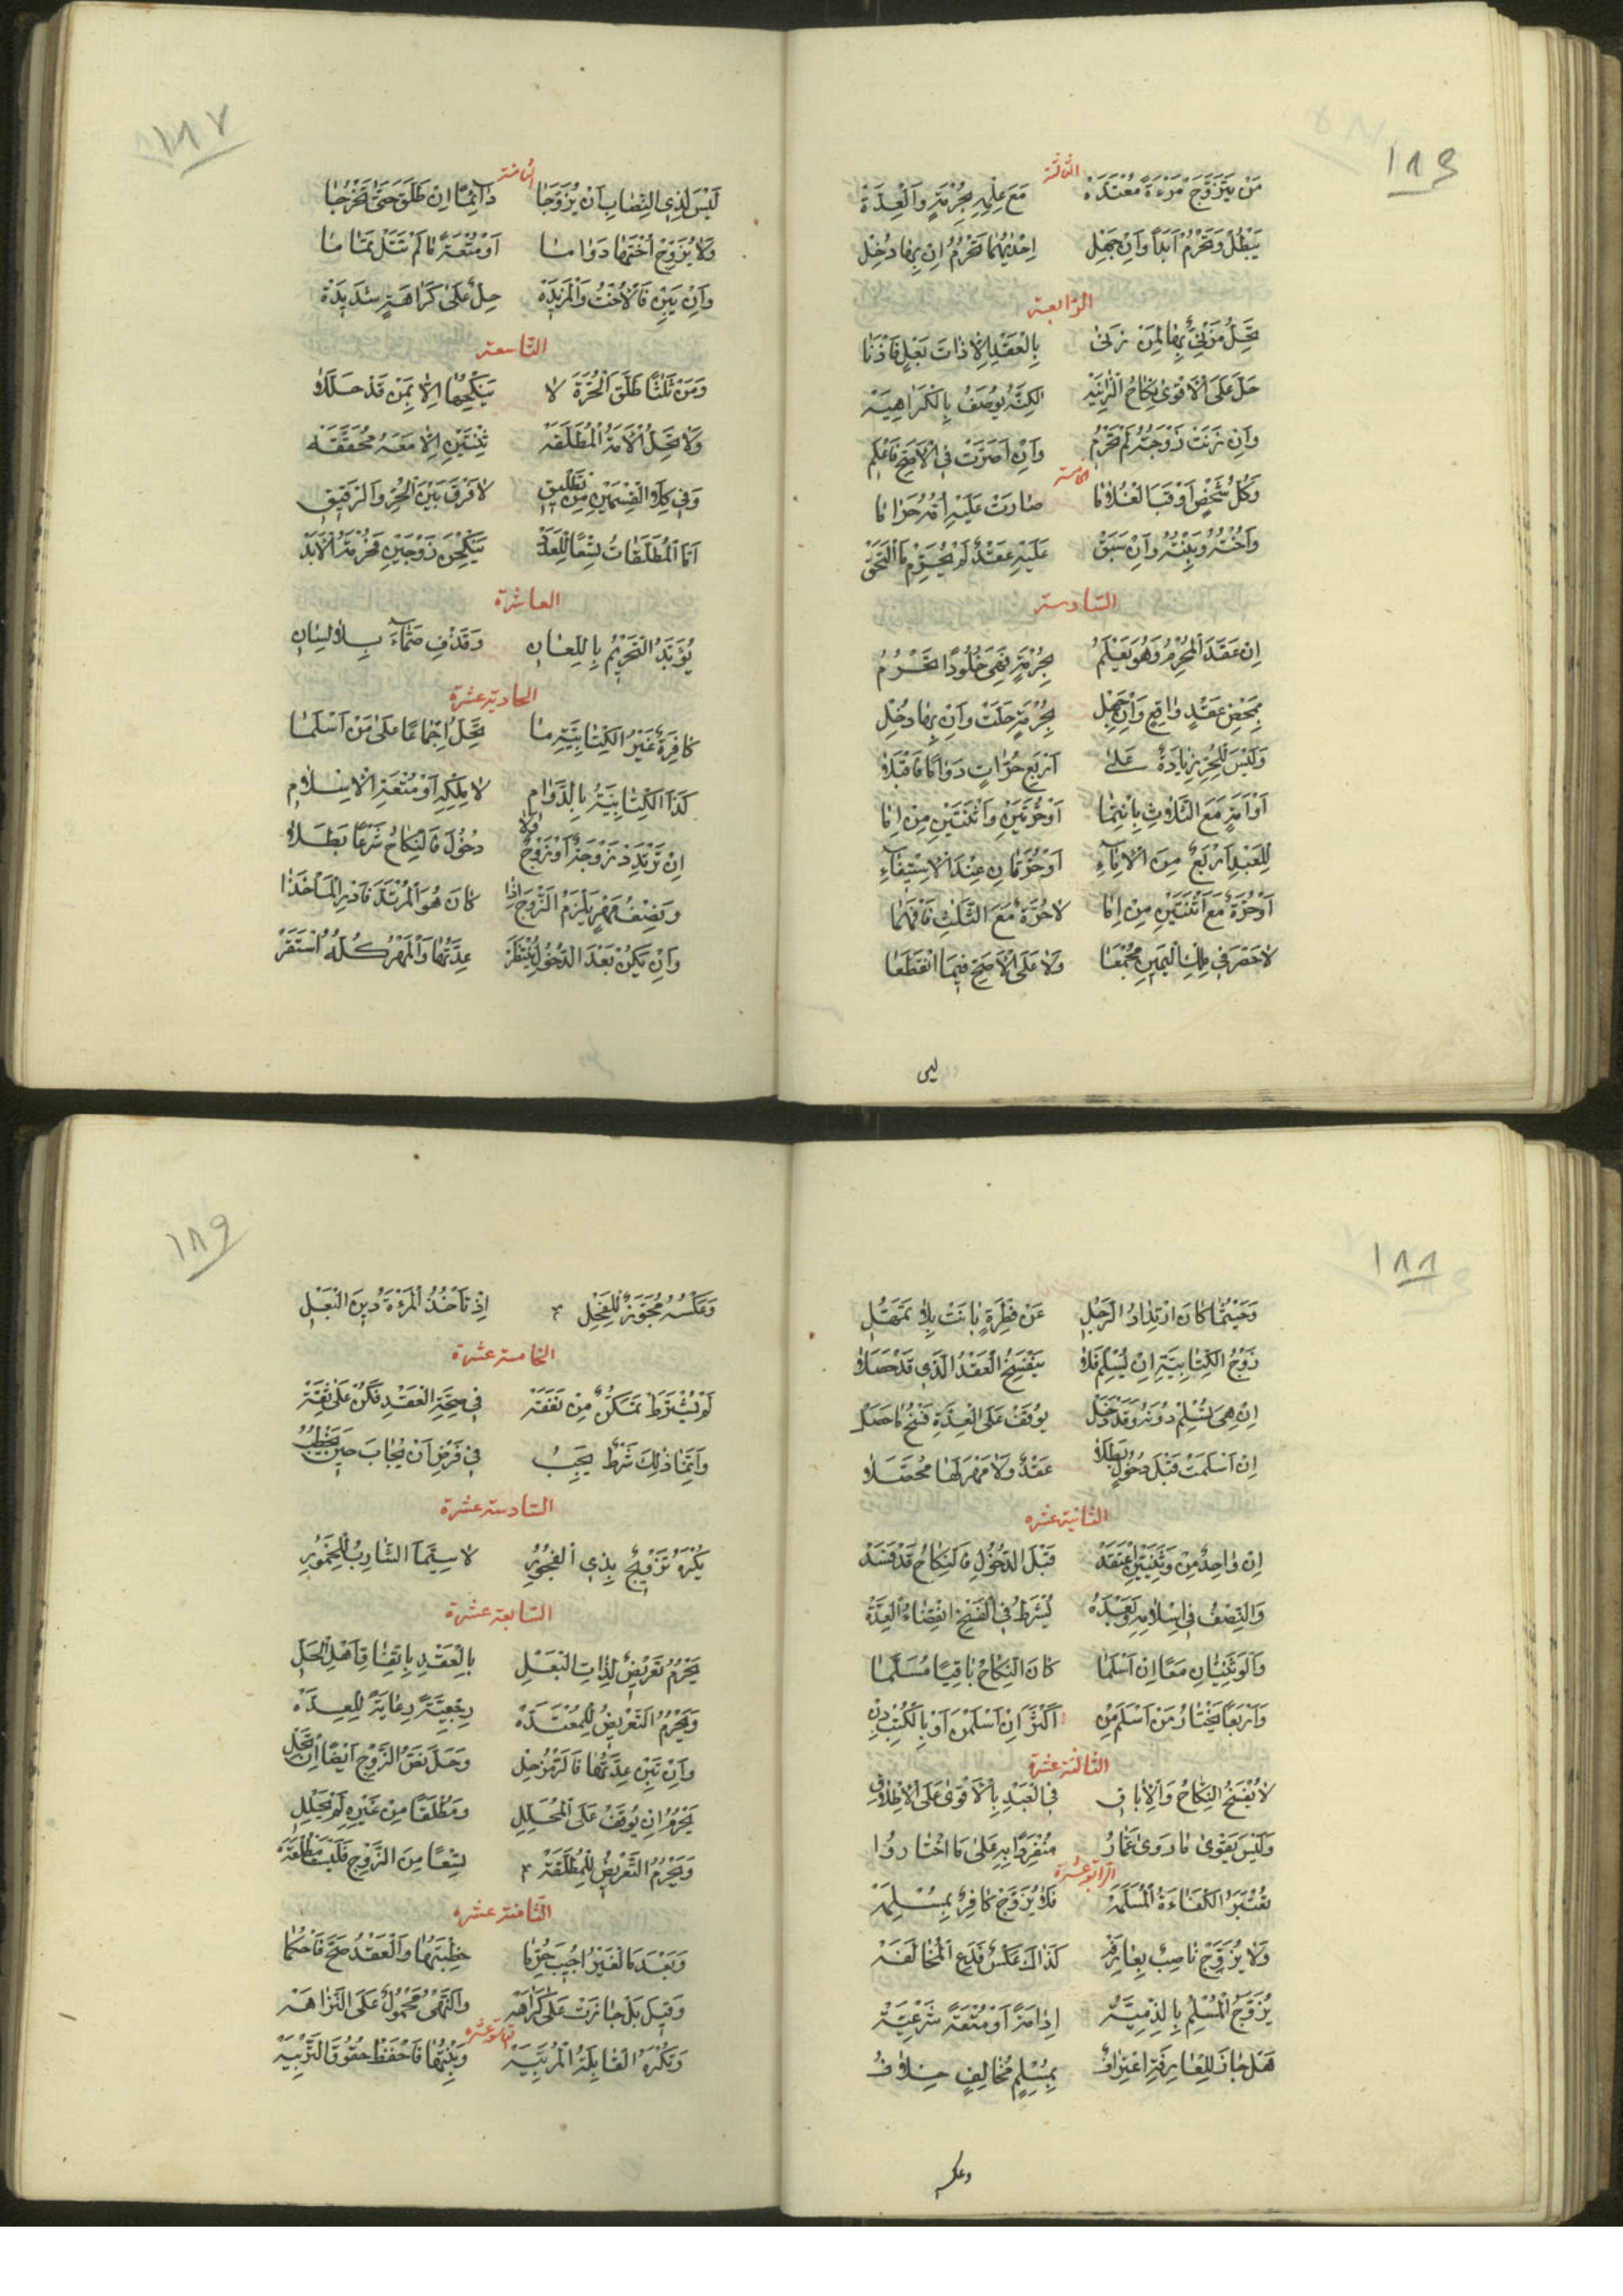 ١٨٦
الثالثة
مَنْ يَتَزَوَّجْ مَرْءَةً مُعْتَدَّهْ مَعَ عِلْمِهِ بِحُرْمَةٍ وَالْعِدَّةْ
يَبْطُلْ وَتَحْرُمْ اَبَدًا وَاِنْ جَهِلْ اِحْدَيهُمَا تَحْرُمُ اِنْ بِهَا دَخِلْ
الرابعة
تَحِلُّ مَزْنِيٌّ بِهَا لِمَنْ زَنىٰ بِالْعَقْدِ اِلَّا ذَاتَ بَعْلٍ فَاذِنَا
حَلَّ عَلَى الْاَقْوىٰ نِكَاحُ الزَّانِيَهْ لٰكِنَّهُ يُوصَفُ بِالْكَرَاهِيَهْ
وَاِنْ زَنَتْ زَوْجَتُهُ لَمْ تَحْرُمُ وَاِنْ اَصَرَّتْ فِي الْاَصَحِّ فَاعْلَمِ
الخامسة
وَكُلُّ شَخْصٍ اَوْقَبَ الْغُلَامَا صَارَتْ عَلَيْهِ اُمُّهُ حَرَامَا
وَاُخْتُهُ وَبِنْتُهُ وَاِنْ سَبَقْ عَلَيْهِ عَقْدٌ لَمْ يُحَرِّمْ مَا الْتَحَقْ
السادسة
اِنْ عَقَدَ الْمُحْرِمُ وَهُوَ يَعْلَمُ بِحُرْمَةٍ فَهِيَ خُلُودًا تَحْرُمُ
بِمَحْضِ عَقْدٍ وَاقِعٍ وَاِنْ جَهِلْ بِحُرْمَةٍ حَلَّتْ وَاِنْ بِهَا دَخِلْ
وَلَيْسَ لِلْحُرِّ زِيَادَةٌ عَلىٰ اَرْبَعِ حُرَّاتٍ دَوَامًا فَاقْبَلَا
اَوْ اَمَةٍ مَعَ الثَّلَاثِ بِانْتِمَا اَوْ حُرَّتَيْنِ وَاثْنَتَيْنِ مِنْ اِمَا
لِلْعَبْدِ اَرْبَعٌ مِنَ الْاِمَاءِ اَوْ حُرَّتَانِ عِنْدَ الْاِسْتِيفَاءِ
اَوْ حُرَّةٌ مَعَ اثْنَتَيْنِ مِنْ اِمَا لَا حُرَّةٌ مَعَ الثَّلٰثِ فَافْهَمَا
لَا حَصْرَ فِي مِلْكِ الْيَمِينِ مُجْمَعَا وَلَا عَلَى الْاَصَحِّ فِيمَا انْقَطَعَا
ليس
١٨٧
الثامنة
لَيْسَ لِذِي النِّصَابِ اَنْ يُزَوَّجَا دَائِمًا اِنْ طَلَّقَ حَتّٰى تَخْرُجَا
وَلَا يُزَوَّجْ اُخْتَهَا دَوَامَا اَوْ مُتْعَةً مَا لَمْ تَنَلْ تَمَامَا
وَاِنْ يَبِنْ فَالْاُخْتُ وَالْمَزِيدَهْ حِلٌّ عَلىٰ كَرَاهَةٍ شَدِيدَهْ
التاسعة
وَمَنْ ثَلٰثًا طَلَّقَ الْحُرَّةَ لَا يَنْكِحُهَا اِلَّا بِمَنْ قَدْ حَلَّلَا
وَلَا تَحِلُّ الْاَمَةُ الْمُطَلَّقَهْ ثِنْتَيْنِ اِلَّا مَعَهُ مُحَقَّقَهْ
وَفِي كِلَا الْقِسْمَيْنِ مِنْ تَطْلِيقِ لَا فَرْقَ بَيْنَ الْحُرِّ وَالرَّقِيقِ
اَمَّا الْمُطَلَّقَاتُ تِسْعًا لِلْعَدَدْ يَنْكِحْنَ زَوْجَيْنِ فَحُرْمَةُ الْاَبَدْ
العاشرة
يُؤَبَّدُ التَّحْرِيمُ بِاللِّعَانِ وَقَذْفِ صَمَّاءَ بِلَا لِسَانِ
الحادية عشرة
كَافِرَةٌ غَيْرُ الْكِتَابِيَّةِ مَا تَحِلُّ اِجْمَاعًا عَلىٰ مَنْ اَسْلَمَا
كَذَا الْكِتَابِيَّةُ بِالدَّوَامِ لَا مِلْكِهِ اَوْ مُتْعَةِ الْاِسْلَامِ
اِنْ تَرْتَدِدْ زَوْجَةٌ اَوْ زَوْجٌ وَلَا دُخُولَ فَالنِّكَاحُ شَرْعًا بَطَلَا
وَنِصْفُ مَهْرٍ يَلْزَمُ الزَّوْجَ اِذَا كَانَ هُوَ الْمُرْتَدَّ فَادْرِ الْمَأْخَذَا
وَاِنْ يَكُنْ بَعْدَ الدُّخُولِ يُنْتَظَرْ عِدَّتُهَا وَالْمَهْرُ كُلُّهُ اسْتَقَرْ
١٨٨
وَحَيْثُمَا كَانَ ارْتِدَادُ الرَّجُلِ عَنْ فِطْرَةٍ بَانَتْ بِلَا تَمَهُّلِ
زَوْجُ الْكِتَابِيَّةِ اِنْ يُسْلِمْ فَلَا يَنْفَسِخُ الْعَقْدُ الَّذِي قَدْ حَصَلَا
اِنْ هِيَ تُسْلِمْ دُونَهُ وَقَدْ دَخَلْ يُوقَفْ عَلَى الْعِدَّةِ فَسْخٌ مَا حَصَلْ
اِنْ اَسْلَمَتْ قَبْلَ دُخُولٍ بَطَلَا عَقْدٌ وَلَا مَهْرَ لَهَا مُحَصَّلَا
الثانية عشره
اِنْ وَاحِدٌ مِنْ وَثَنِيَّيْنِ اعْتَقَدْ قَبْلَ الدُّخُولِ فَالنِّكَاحُ قَدْ فَسَدْ
وَالنِّصْفُ فِي اِسْلَامِهِ وَبَعْدَهُ يُشْرَطُ فِي الْفَسْخِ انْقِضَاءُ الْعِدَّهْ
وَالْوَثَنِيَّانِ مَعًا اِنْ اَسْلَمَا كَانَ النِّكَاحُ بَاقِيًا مُسَلَّمَا
وَاَرْبَعًا يَخْتَارُ مَنْ اَسْلَمَ مِنْ اَكْثَرَ اِنْ اَسْلَمْنَ اَوْ بِالْكُتْبِ دِنْ
الثالثة عشرة
لَا يُفْسَخُ النِّكَاحُ وَالْاِبَاقِ فِي الْعَبْدِ بِالْاَقْوىٰ عَلَى الْاِطْلَاقِ
وَلَيْسَ يَقْوىٰ مَا رَوىٰ عَمَّارُ مُنْفَرِدًا بِهِ عَلىٰ مَا اخْتَارُوا
الرابعة عشرة
تُعْتَبَرُ الْكَفَاءَةُ الْمُسَلَّمَهْ فَلَا يُزَوَّجْ كَافِرٌ بِمُسْلِمَهْ
وَلَا يُزَوَّجْ نَاصِبٌ بِعَارِفَهْ كَذَاكَ عَكْسٌ فَدَعِ الْمُخَالَفَهْ
يُزَوَّجُ الْمُسْلِمُ بِالذِّمِّيَّهْ اِدَامَةً اَوْ مُتْعَةً شَرْعِيَّهْ
هَلْ جَازَ لِلْعَارِفَةِ اعْتِرَافُ بِمُسْلِمٍ مُخَالِفٍ خِلَافُ
وعكسه
١٨٩
وَعَكْسُهُ مُجَوَّزٌ لِلْفَحْلِ اِذْ تَأْخُذُ الْمَرْءَةُ دِينَ الْبَعْلِ
الخامسة عشرة
لَوْ يُشْتَرَطْ تَمَكُّنٌ مِنْ نَفَقَهْ فِي صِحَّةِ الْعَقْدِ فَكُنْ عَلىٰ ثِقَهْ
وَاِنَّمَا ذٰلِكَ شَرْطٌ يَجِبُ فِي فَرْضِ اَنْ يُجَابَ حِينَ يَخْطُبُ
السادسة عشرة
يُكْرَهُ تَزْوِيجٌ بِذِي الْفُجُورِ لَا سِيَّمَا الشَّارِبُ لِلْخُمُورِ
السابعة عشرة
يَحْرُمُ تَعْرِيضٌ لِذَاتِ الْبَعْلِ بِالْعَقْدِ بِاتِّفَاقِ اَهْلِ الْحَلِّ
وَيَحْرُمُ التَّعْرِيضُ لِلْمُعْتَدَّهْ رَجْعِيَّةً رِعَايَةً لِلْعِدَّهْ
وَاِنْ تَبِنْ عِدَّتُهَا فَالرَّمْزُ حِلْ وَحَلَّ نَصُّ الزَّوْجِ اَيْضًا اِنْ تَحِلْ
يَحْرُمُ اِنْ يُوقَفْ عَلَى الْمُحَلِّلِ وَمُطْلَقًا مِنْ غَيْرِهِ لَمْ يَحْلِلِ
وَيَحْرُمُ التَّعْرِيضُ لِلْمُطَلَّقَهْ تِسْعًا مِنَ الزَّوْجِ فَلَيْسَتْ مُطْلَقَهْ
الثامنة عشره
وَبَعْدَ مَا لْغَيْرُ اُجِيبَ حَرِّمَا خِطْبَتَهَا وَالْعَقْدُ صَحَّ فَاحْكُمَا
وَقِيلَ بَلْ جَازَتْ عَلىٰ كَرَاهَهْ وَالنَّهْيُ مَحْمُولٌ عَلَى النَّزَاهَهْ
التاسعة عشره
وَتُكْرَهُ الْقَابِلَةُ الْمُرَبِّيَهْ وَبِنْتُهَا فَاحْفَظْ حُقُوقَ التَّرْبِيَهْ